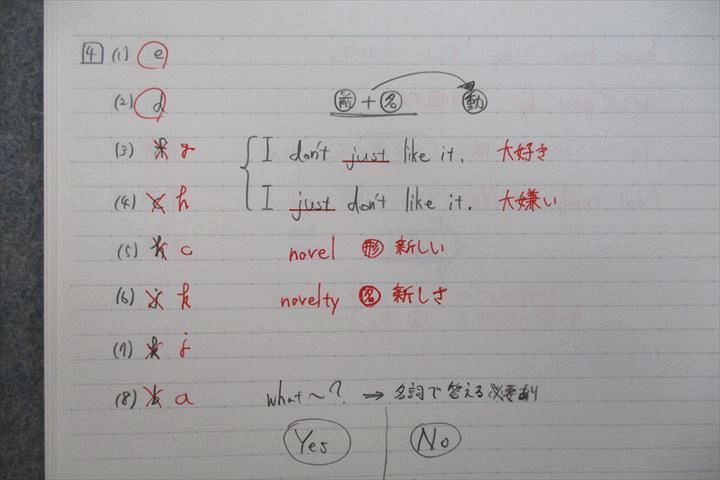 4 (1) e
(2) d 前+名 動
(3) g I don't just like it. 大好き
(4) h I just don't like it. 大嫌い
(5) c novel 形 新しい
(6) k novelty 名 新しさ
(7) j
(8) a what~? → 名詞で答える必要あり
Yes No